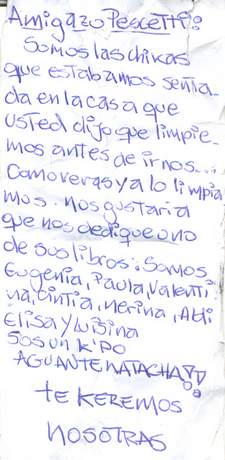 Amigazo Pescetti:
Somos las chikas
que estabamos senta-
da en la casa que
usted dijo que limpie-
mos antes de irnos...
Como veras ya lo limpia
mos. nos gustaria
que nos dedique uno
de sus libros: Somos
Eugenia, Paula, Valenti
na, Cintia, Nerina, Aldi
Elisa y Luisina
Sos un K'PO
AGUANTE NATACHA!!
te KEREMOS
NOSOTRAS